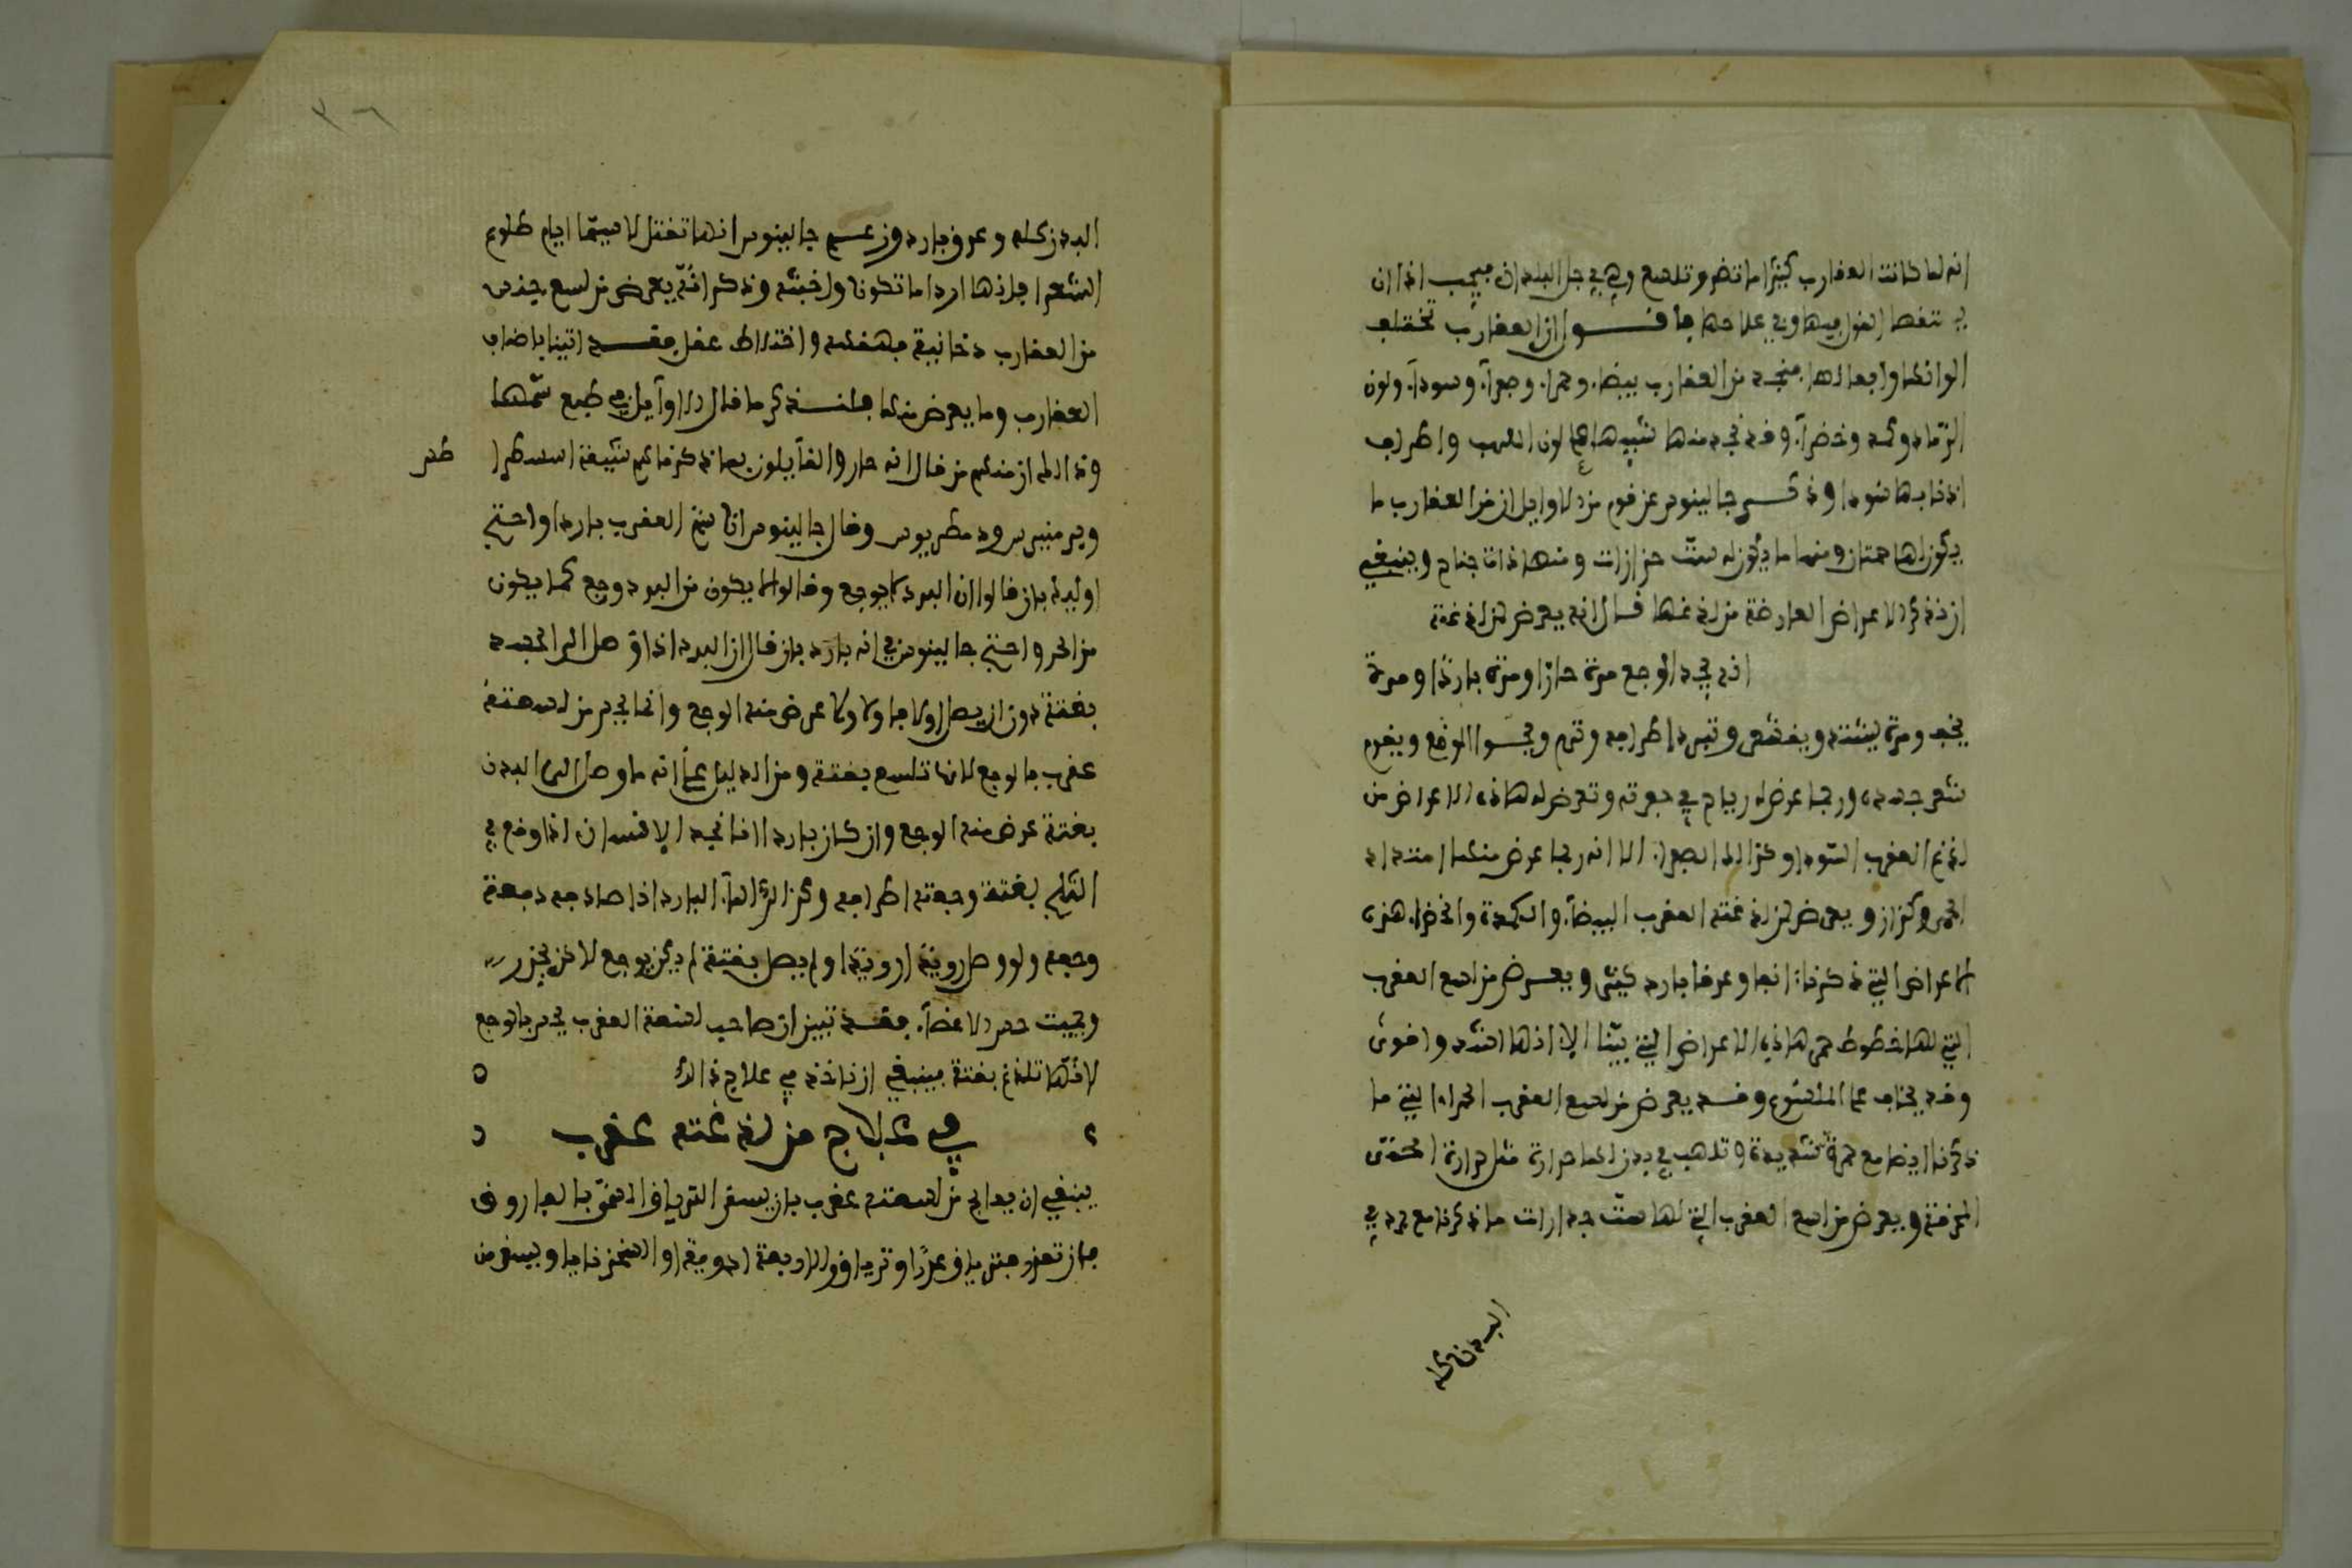 انه لما كانت العقارب كثيرا ما تضر وتلسع وهي في جل البلدان فيجب اذا ان
يتقصا القول فيها وفي علاجها فأقول ان العقارب تختلف
الوانها وافعالها فنجد من العقارب بيضا وحمرا وصفرآ وسودآ ولون
الرماد وكمد وخضرآ وقد نجد منها شبيها لون اللهب واطراف
اذنابها سودا وذكر جالينوس عن قوم من الاوايل ان من العقارب ما
يكون لها حمتان ومنها ما يكون له ست خرازات ومنها ذات جناح وينبغي
ان نذكر الاعراض العارضة من لدغها فقال انه يعرض لمن لدغته
انه يجد الوجع مرة حارا ومرة باردا ومرة
يخف ومرة يشتد ويقشعر وتبرد اطرافه وترم ويجسوا الموضع ويقوم
شعر جسده وربما عرض له رياح في وتعرض له هاذه الاعراض من
لدغ العقرب السودا وكذالك الصفرا الا انه ربما عرض منها امتداد
وكزاز ويعرض لمن لدغته العقرب البيضآ والكمدة والخضرا هذه
الاعراض التي ذكرناها انفا وعرقا بارد كثير ويعرض من لسع العقرب
التي لها خطوط حمر هاذه الاعراض التي بيّنا الا انها اشد واقوى
وقد يخاف على الملسوع وقد يعرض من لسع العقرب الحمرا التي ما
ذكرنا ايضا مع حمرة شديدة وتلهب في بدن لها حرارة مثل حرارة الحمى
المحرقة ويعرض من لسع العقرب التي لها ست فقارات ما ذكرنا مع برد في
البدن كله
البدن كله وعرق بارد وزعم جالينوس انها تقتل لا سيما ايام طلوع
الشعرا فانها اردا ما تكون واخبثه وذكر انه يعرض من لسع جنس
من العقارب دخانية واختلاط عقل فقد اتينا باصناف
العقارب وما يعرض منها فلنذكر ما قال الاوآيل في طبع سمها
وذالك ان منهم من قال انه حار والقآيلون بما ذكرنا هم شيعة اسطرا
طس
وبرمنيدس ودمطريوس وقال جالينوس ان سم العقرب باردا واحتج
اوليك بان قالوا ان البرد لا يوجع وقالوا لا يكون من البرد وجع كما يكون
من الحر واحتج جالينوس في انه بارد بان قال ان البرد اذا وصل الى الجسد
بغتة دون ان يصل اولا فاولا عرض منه الوجع وانما يجد من لسعته
عقرب بالوجع لانها تلسع بغتة ومن الدليل على انه ما وصل الى البدن
بغتة عرض منه الوجع وان كان باردا انا نجد الانسان اذا وقع في
الثلج بغتة وجعته اطرافه وكذالك المآ البارد اذا صادفه دفعة
وجعه ولو وصل روية روية ولم يصل بغتة لم يكن يوجع لاكن يخدر
ويميت حس الاعضآ فقد تبين ان صاحب لسعة العقرب يجد بالوجع
لانها تلدغ بغتة فينبغي ان ناخذ في علاج ذالك
في علاج من لدغته عقرب
ينبغي ان يعالج من لسعته عقرب بان يسقى الترياق المسمى بالفاروق
فان تعذر فترياق عزرا او ترياق الاربعة ادوية او السجزنايا ويسقى من